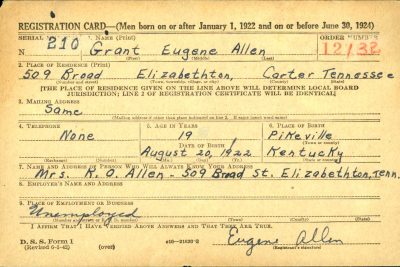 REGISTRATION CARD—(Men born on or after January 1, 1922 and on or before June 30, 1924)
SERIAL NUMBER 1. NAME (Print) ORDER NUMBER
N 210 Grant Eugene Allen 12132
(First) (Middle) (Last)
2. PLACE OF RESIDENCE (Print)
509 Broad Elizabethton, Carter Tennessee
(Number and street) (Town, township, village, or city) (County) (State)
[THE PLACE OF RESIDENCE GIVEN ON THE LINE ABOVE WILL DETERMINE LOCAL BOARD
JURISDICTION; LINE 2 OF REGISTRATION CERTIFICATE WILL BE IDENTICAL]
3. MAILING ADDRESS
Same
(Mailing address if other than place indicated on line 2. If same insert word same)
4. TELEPHONE 5. AGE IN YEARS 6. PLACE OF BIRTH
None 19 Pikeville
DATE OF BIRTH (Town or county)
August 20, 1922 Kentucky
(Exchange) (Number) (Mo.) (Day) (Yr.) (State or country)
7. NAME AND ADDRESS OF PERSON WHO WILL ALWAYS KNOW YOUR ADDRESS
Mrs. R. O. Allen - 509 Broad St. Elizabethton, Tenn.
8. EMPLOYER'S NAME AND ADDRESS
9. PLACE OF EMPLOYMENT OR BUSINESS
Unemployed
(Number and street or R. F. D. number) (Town) (County) (State)
I AFFIRM THAT I HAVE VERIFIED ABOVE ANSWERS AND THAT THEY ARE TRUE.
D. S. S. Form 1
(Revised 6-9-42) (over) Eugene Allen
(Registrant's signature)